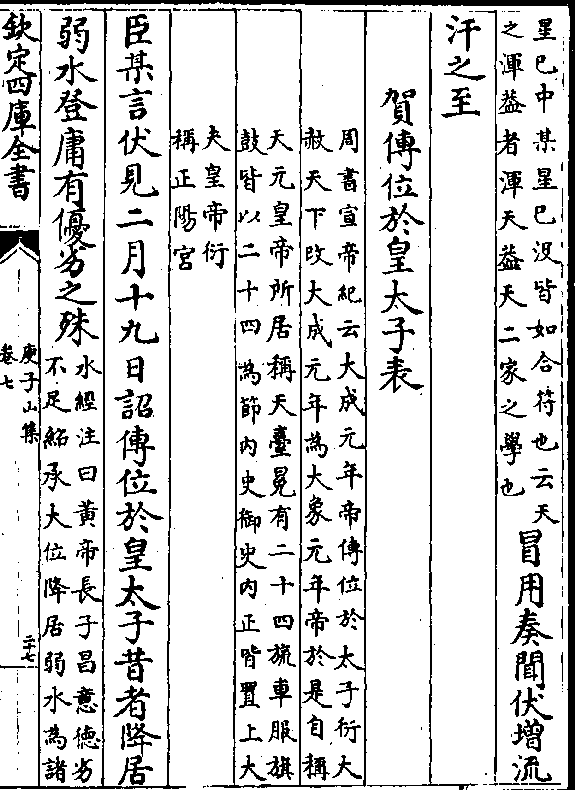 星已中某星已没皆如合符也云天
之渾葢者渾天葢天二家之學也
冒用奏聞伏增流
汗之至
賀傳位於皇太子表
周書宣帝紀云大成元年帝傳位於太子衍大
赦天下改大成元年為大象元年帝於是自稱
天元皇帝所居稱天臺冕有二十四旒車服旗
鼓皆以二十四為節内史御史内正皆置上大
夫皇帝衍
稱正陽宮
臣某言伏見二月十九日詔傳位於皇太子昔者降居
弱水登庸有優劣之殊
水經注曰黄帝長子昌意德劣
不足紹承大位降居弱水為諸
欽定四庫全書
庾子山集
卷七
二十七